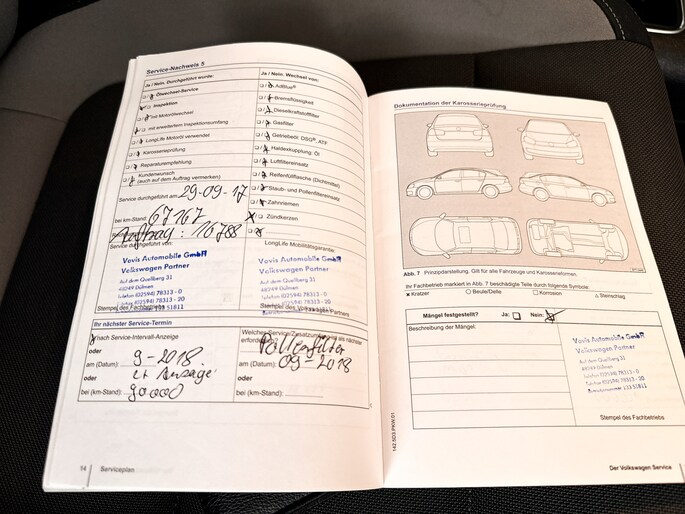 Service-Nachweis 5
Ja / Nein. Durchgeführt wurde:
Ölwechsel-Service
Inspektion
mit Motorölwechsel
mit erweitertem Inspektionsumfang
LongLife Motoröl verwendet
Karosserieprüfung
Reparaturempfehlung
Kundenwunsch
(auch auf dem Auftrag vermerken)
Ja / Nein. Wechsel von:
AdBlue®
Bremsflüssigkeit
Dieselkraftstofffilter
Gasfilter
Getriebeöl: DSG®, ATF
Haldexkupplung: Öl
Luftfiltereinsatz
Reifenfüllflasche (Dichtmittel)
Staub- und Pollenfiltereinsatz
Zahnriemen
Zündkerzen
Service durchgeführt am: 29-09-17
bei km-Stand: 67167
Auftrag: 16788
Service durchgeführt von:
Vovis Automobile GmbH
Volkswagen Partner
Auf dem Quellberg 31
48249 Dülmen
Telefon (02594) 78313 - 0
Telefax (02594) 78313 - 20
LongLife Mobilitätsgarantie:
Vovis Automobile GmbH
Volkswagen Partner
Auf dem Quellberg 31
48249 Dülmen
Telefon (02594) 78313 - 0
Telefax (02594) 78313 - 20
Ihr nächster Service-Termin
nach Service-Intervall-Anzeige
oder
am (Datum): 9-2018
oder
bei (km-Stand): 90000
Welcher Service/Zusatzumfang ist als nächster
erforderlich?
Pollenfilter
am (Datum): 09-2018
oder
bei (km-Stand):
14 Serviceplan
Dokumentation der Karosserieprüfung
Abb. 7 Prinzipdarstellung. Gilt für alle Fahrzeuge und Karosserieformen.
Ihr Fachbetrieb markiert in Abb. 7 beschädigte Teile durch folgende Symbole:
Kratzer Beule/Delle Korrosion Steinschlag
Mängel festgestellt? Ja: Nein:
Beschreibung der Mängel:
Vovis Automobile GmbH
Volkswagen Partner
Auf dem Quellberg 31
48249 Dülmen
Telefon (02594) 78313 - 0
Telefax (02594) 78313 - 20
Betriebsnummer 133 51811
Stempel des Fachbetriebs
142.5D3.PKW.01
Der Volkswagen Service